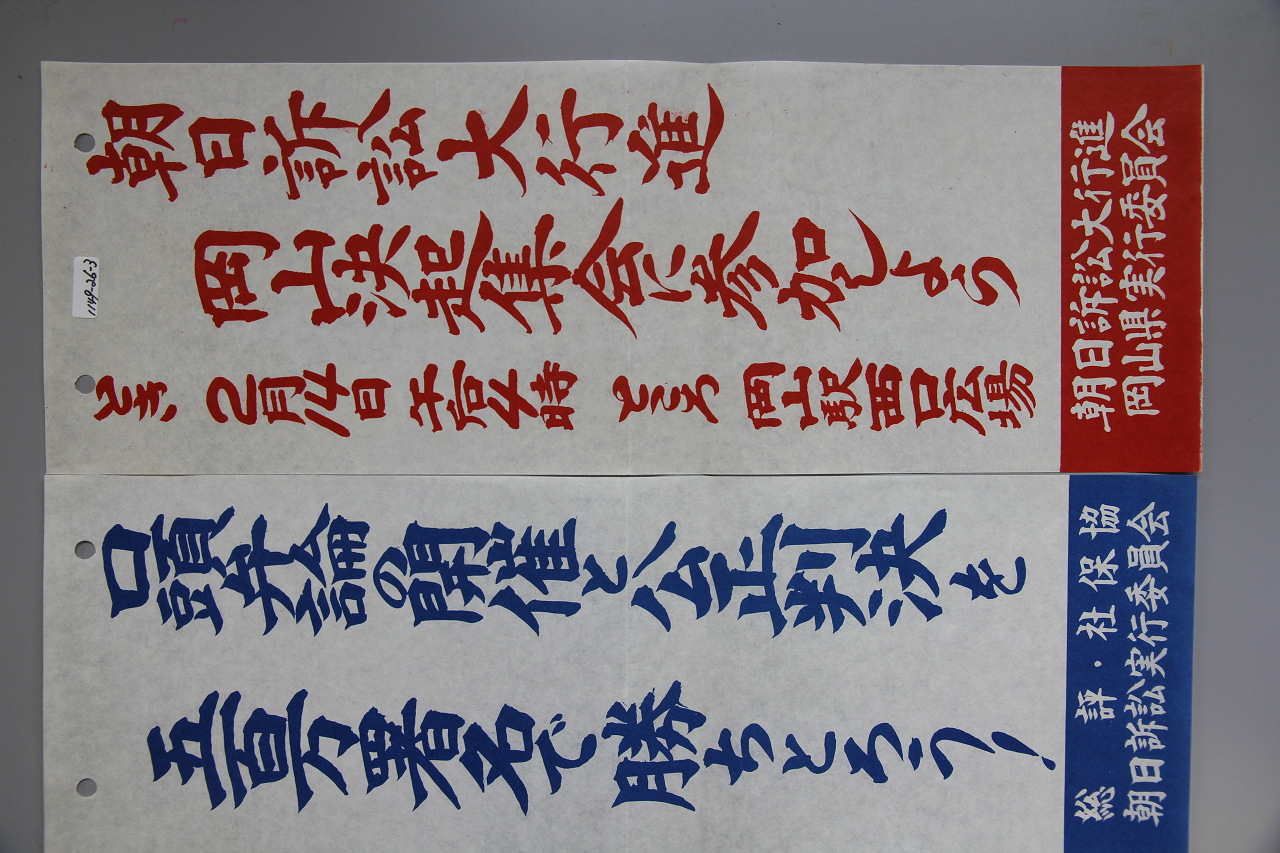 朝日訴訟大行進
岡山決起集会に参加しよう
とき、2月14日 午后4時 ところ 岡山駅西口広場
朝日訴訟大行進
岡山県実行委員会
1149-26-3
口頭弁論の開催と公正判決を
五百万署名で勝ちとろう!
総評・社保協
朝日訴訟実行委員会